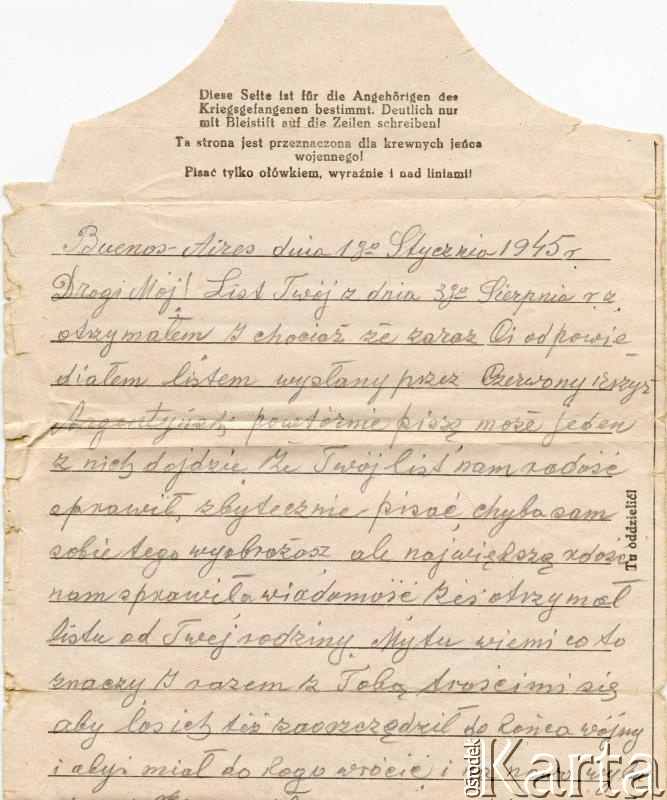 Diese Seite ist für die Angehörigen des
Kriegsgefangenen bestimmt. Deutlich nur
mit Bleistift auf die Zeilen schreiben!
Ta strona jest przeznaczona dla krewnych jeńca
wojennego!
Pisać tylko ołówkiem, wyraźnie i nad liniami!
Buenos-Aires dnia 1go Stycznia 1945 r.
Drogi Mój! List Twój z dnia 33go Sierpnia r.z
otrzymałem I chociaż że zaraz Ci odpowie
działem listem wysłany przez Czerwony krzyż
Argentyński powtórnie piszę może jeden
z nich dojdzie Że Twój list nam radość
sprawił, zbytecznie pisać chyba sam
sobie tego wyobrażasz ale największą radość
nam sprawiła wiadomość Żeś otrzymał
listu od Twej rodziny. My tu wiemi co to
znaczy I razem z Tobą trościmi się
aby los ich też zaoszczędził do końca wójny
i abyś miał do kogo wrócić i na nowo
Tu oddzielić!
Ośrodek
Karta